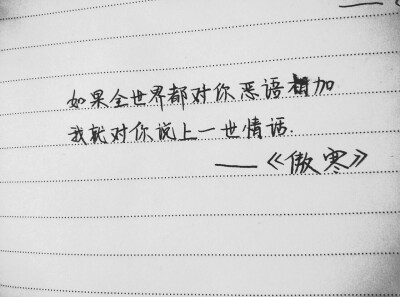 如果全世界都对你恶语相加
我就对你说上一世情话.
——《傲寒》